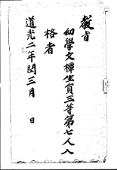 教旨
幼學文樟生員三等第七人入
格者
道光二年閏三月　日